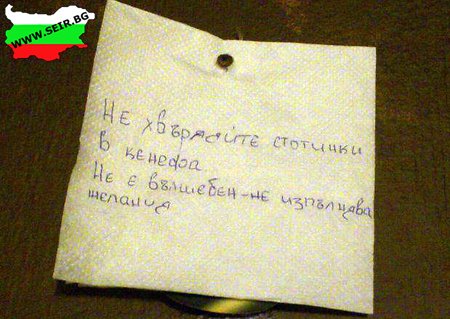 WWW.SEIR.BG
Не хвърляйте стотинки
в кенефа.
Не е вълшебен-не изпълнява
желания